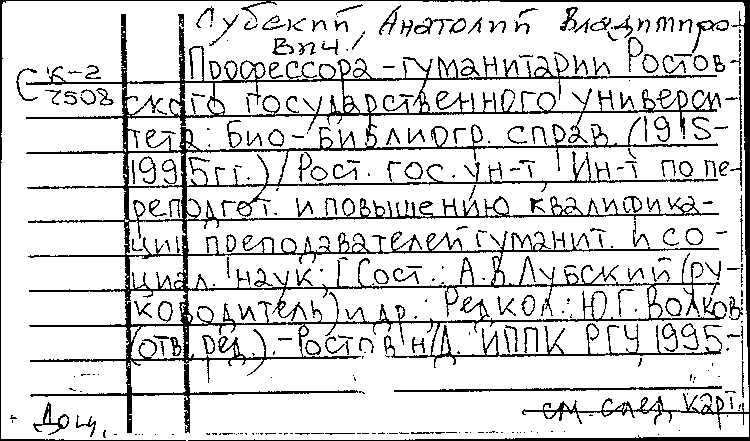 Лубский, Анатолий Владимиро-
вич.
С К-2
7508
Профессора-гуманитарии Ростов-
ского государственного универси-
тета: Био-библиогр. справ. (1915-
1995гг.) / Рост. гос. ун-т, Ин-т по пе-
реподгот. и повышению квалифика-
ции преподавателей гуманит. и со-
циал. наук; [Сост.: А.В.Лубский (ру-
ководитель) и др.; Редкол.: Ю.Г.Волков
(отв. ред.). - Ростов н/Д. ИППК РГУ, 1995.-
см. след. карт.